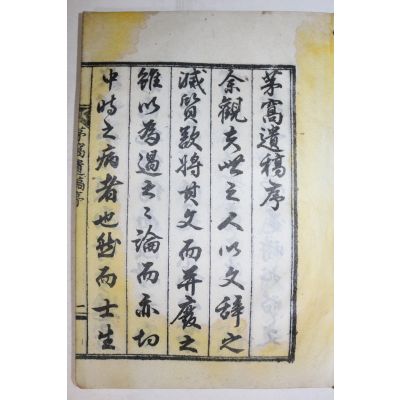 茅窩遺稿序
余觀夫世之人以文辭之
滅質欲將其文而并廢之
雖以為過之〻論而亦切
中時之病者也然而士生
茅窩遺稿序 一